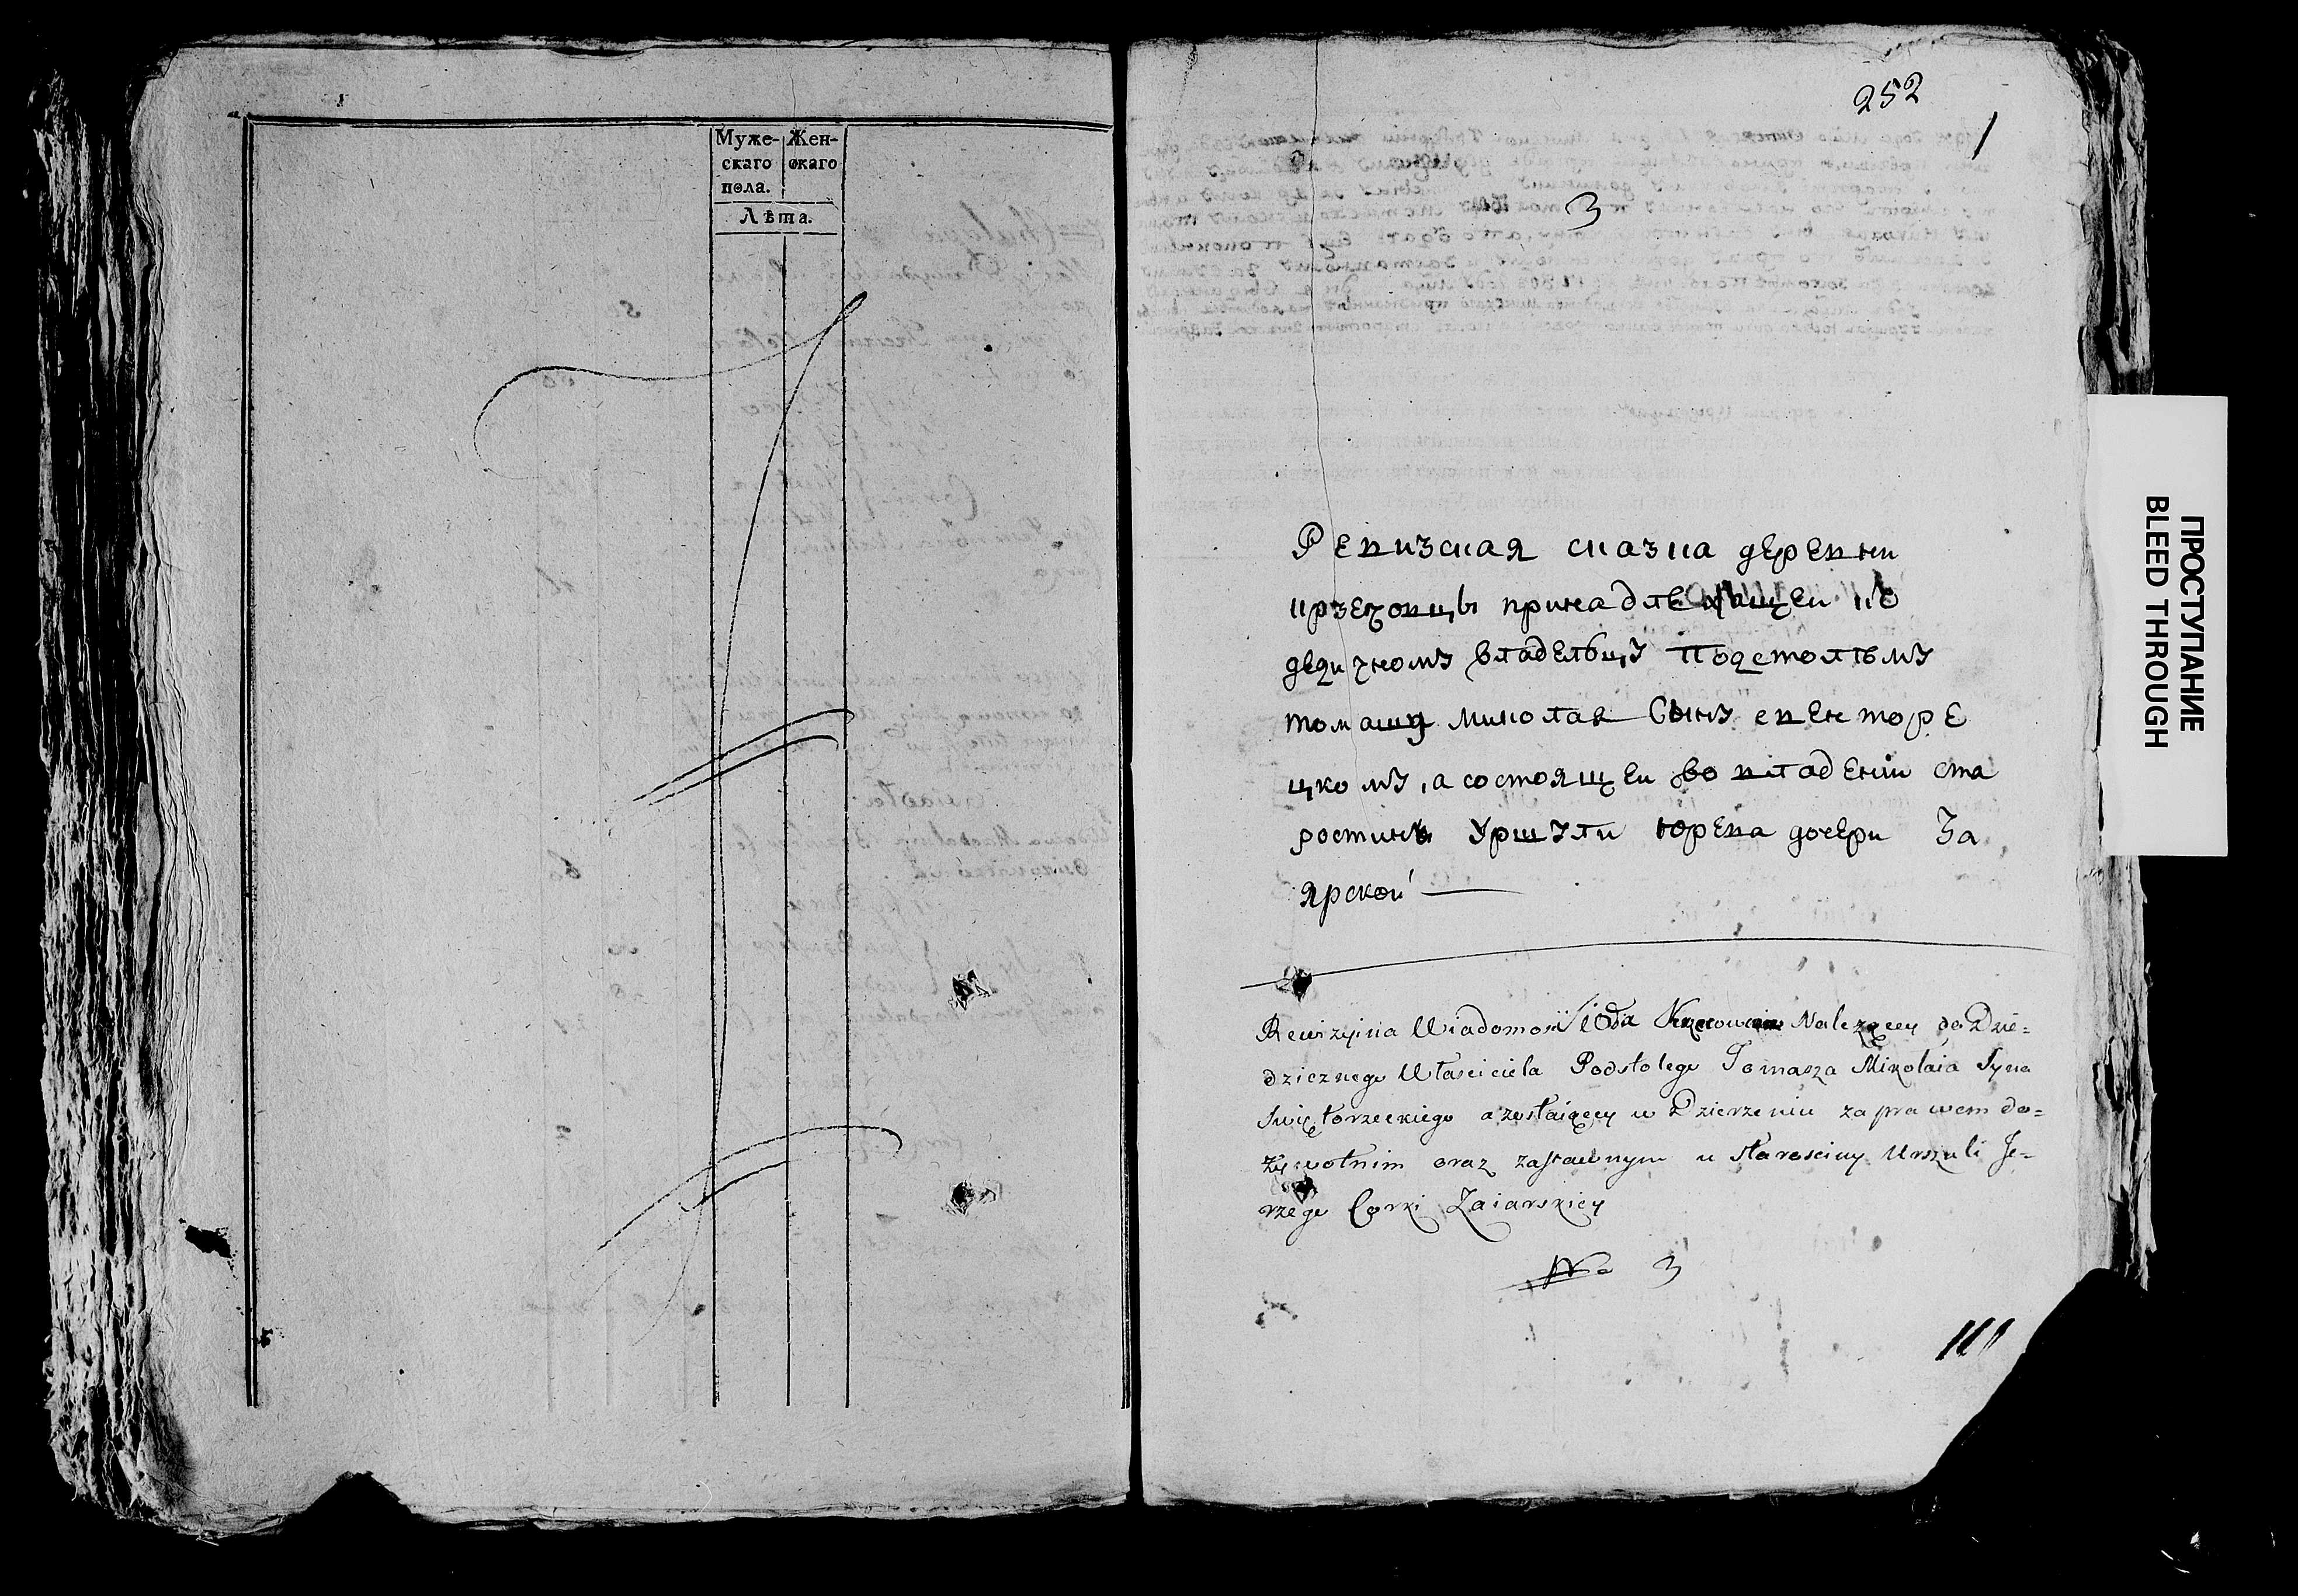 Муже-
скаго
пола.
Жен-
скаго
Лѣта.
252
1
3
Ревизская сказка деревни
крзечовцы принадлежащеи не
дедичному владельцу Подстольму
томашу миколая Сыну свенторе
цкому, а состоящеи во владении ста
ростинѣ Уршули юрева дочери За
ярской
Rewizyina Wiadomość Wsi Krzeczowiec Należącey do Dzie=
dzicznego Właściciela Podstolego Tomasza Mikołaia Syna
Swiętorzeckiego a zostaiącey w Dzierzeniu za prawem do=
żywotnim oraz zastawnym u Starościny Urszuli Je=
rzego Corki Zaiarskiey
No 3
ПРОСТУПАНИЕ
BLEED THROUGH